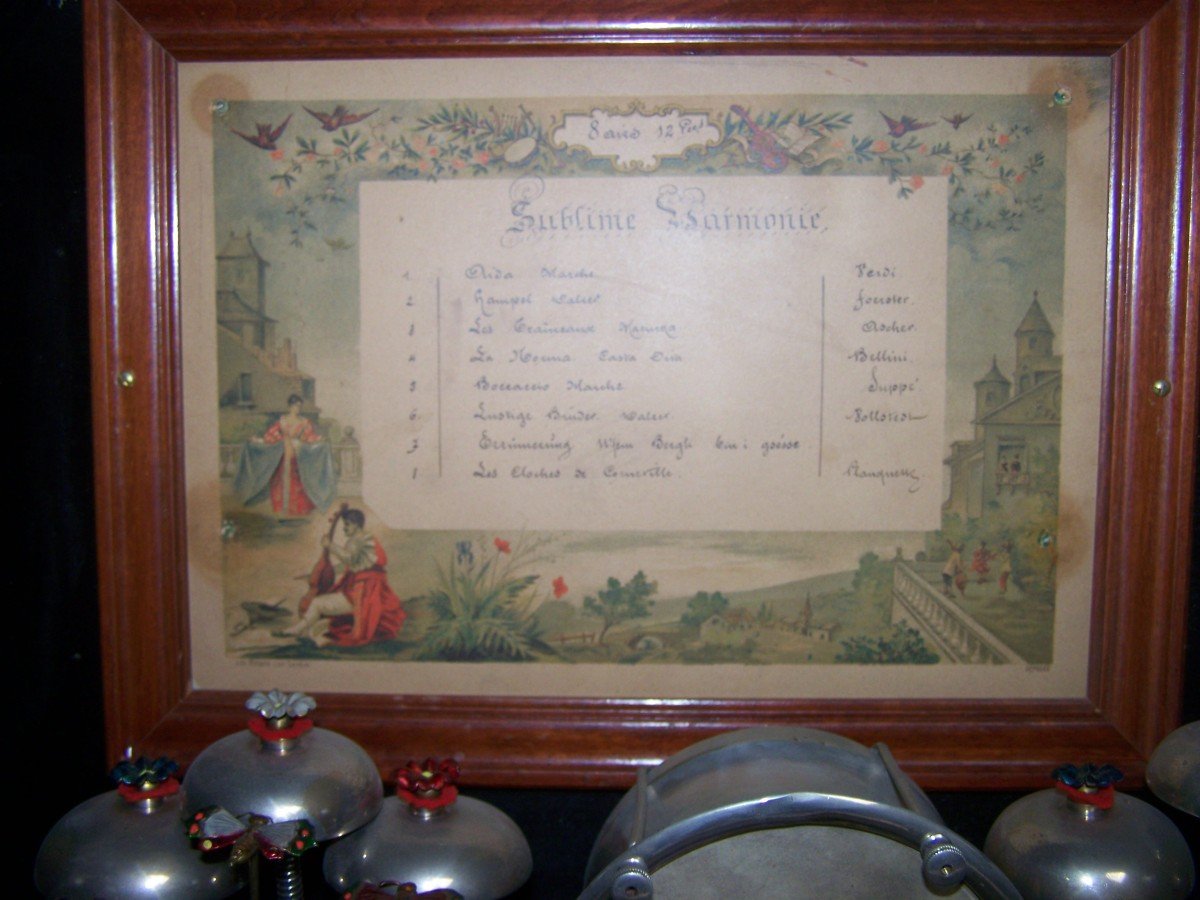 8 airs 12 Pces
Sublime Harmonie
1 Aida Marche Verdi
2 Valzer Foerster
3 Les Traineaux Mazurka Ascher
4 La Norma Casta Diva Bellini
5 Boccaccio Marche Suppé
6 Lustige Brüder Valzer Vollstedt
7 Errinnerung
8 Les Cloches de Corneville Planquette